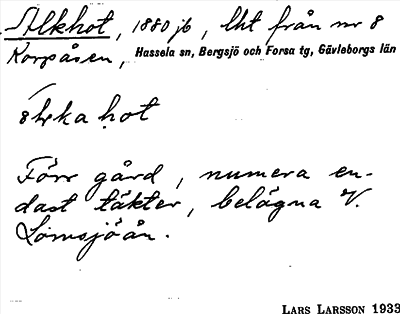 Alkhot, 1880 jb, lht från nr 8
Korpåsen, Hassela sn, Bergsjö och Forsa tg, Gävleborgs län
hot
Förr gård, numera en-
dast täkter, belägna V.
Lömsjöån.
LARS LARSSON 1933